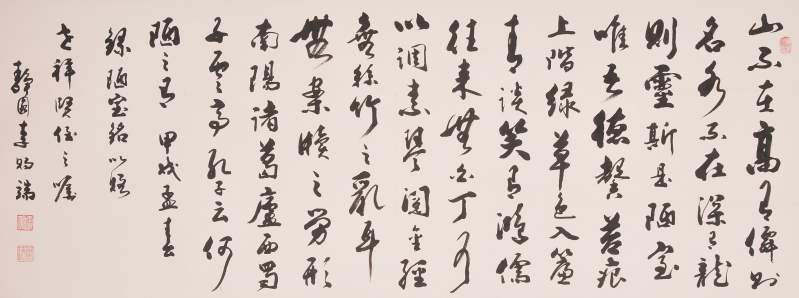 山不在高有僊則
名水不在深有龍
則靈斯是陋室
唯吾德馨苔痕
上階綠草色入簾
青談笑有鴻儒
往來無白丁可
以調素琴閱金經
無絲竹之亂耳
無案牘之勞形
南陽諸葛廬西蜀
子雲亭孔子云何
陋之有 甲戌孟春
錄陋室銘以應
祥賢侄之囑
靜園李